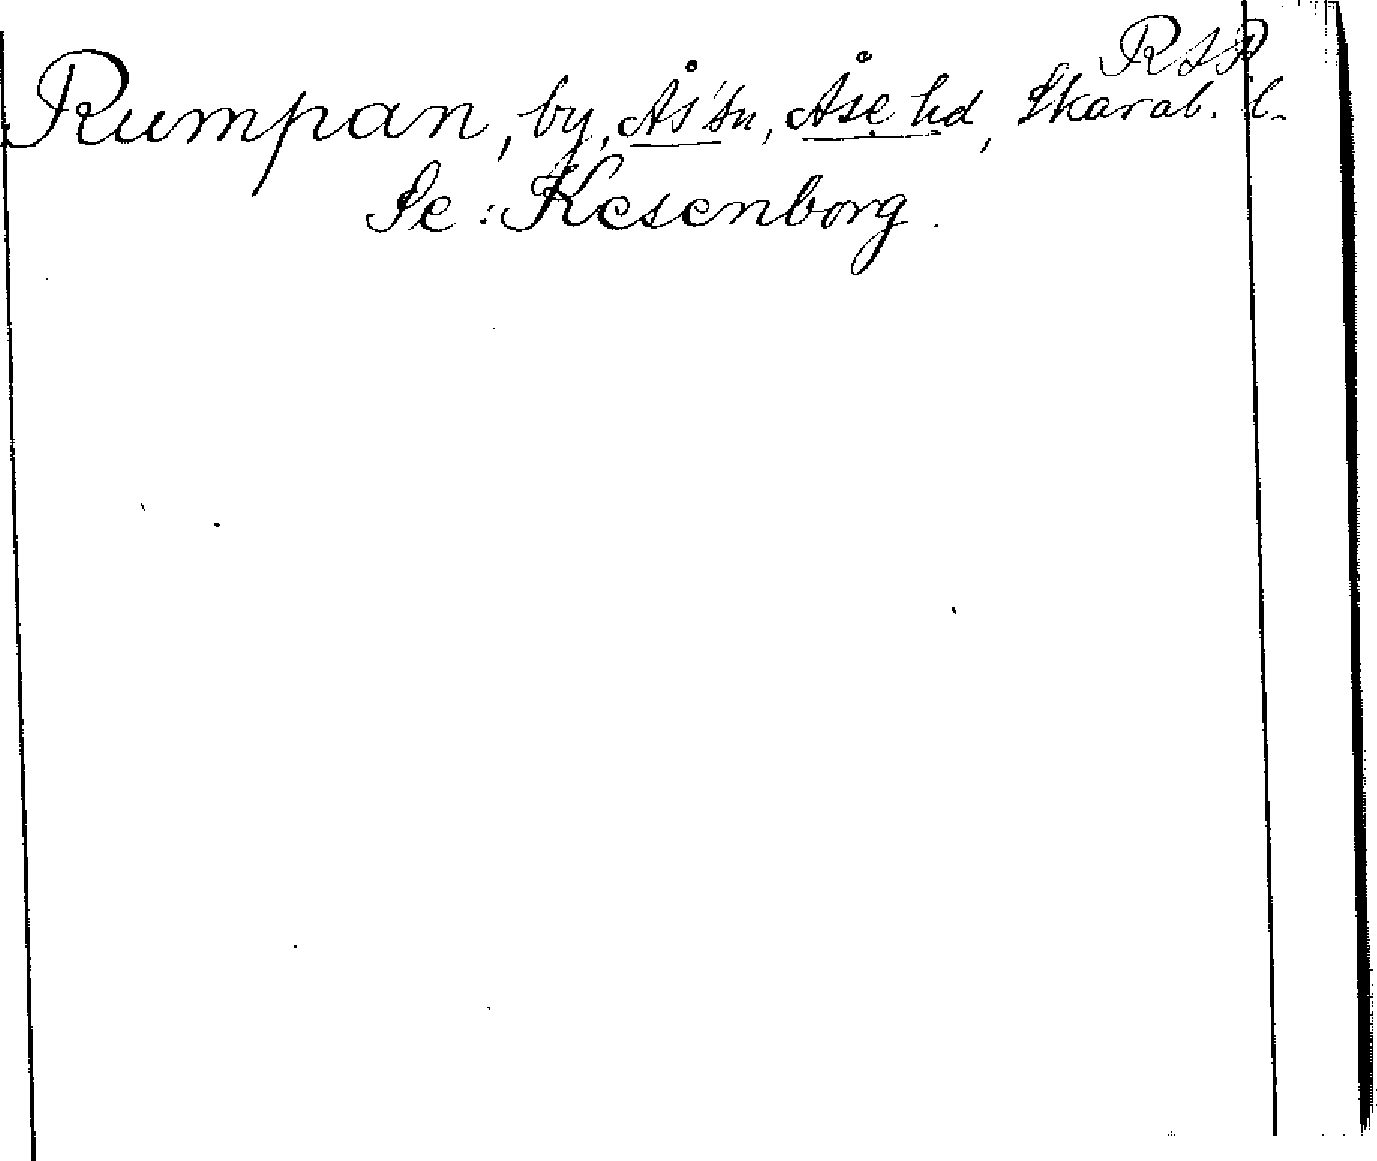 RSR
Rumpan, by, Ås sn, Åse hd, Skarab. l.
Se: Kesenborg.